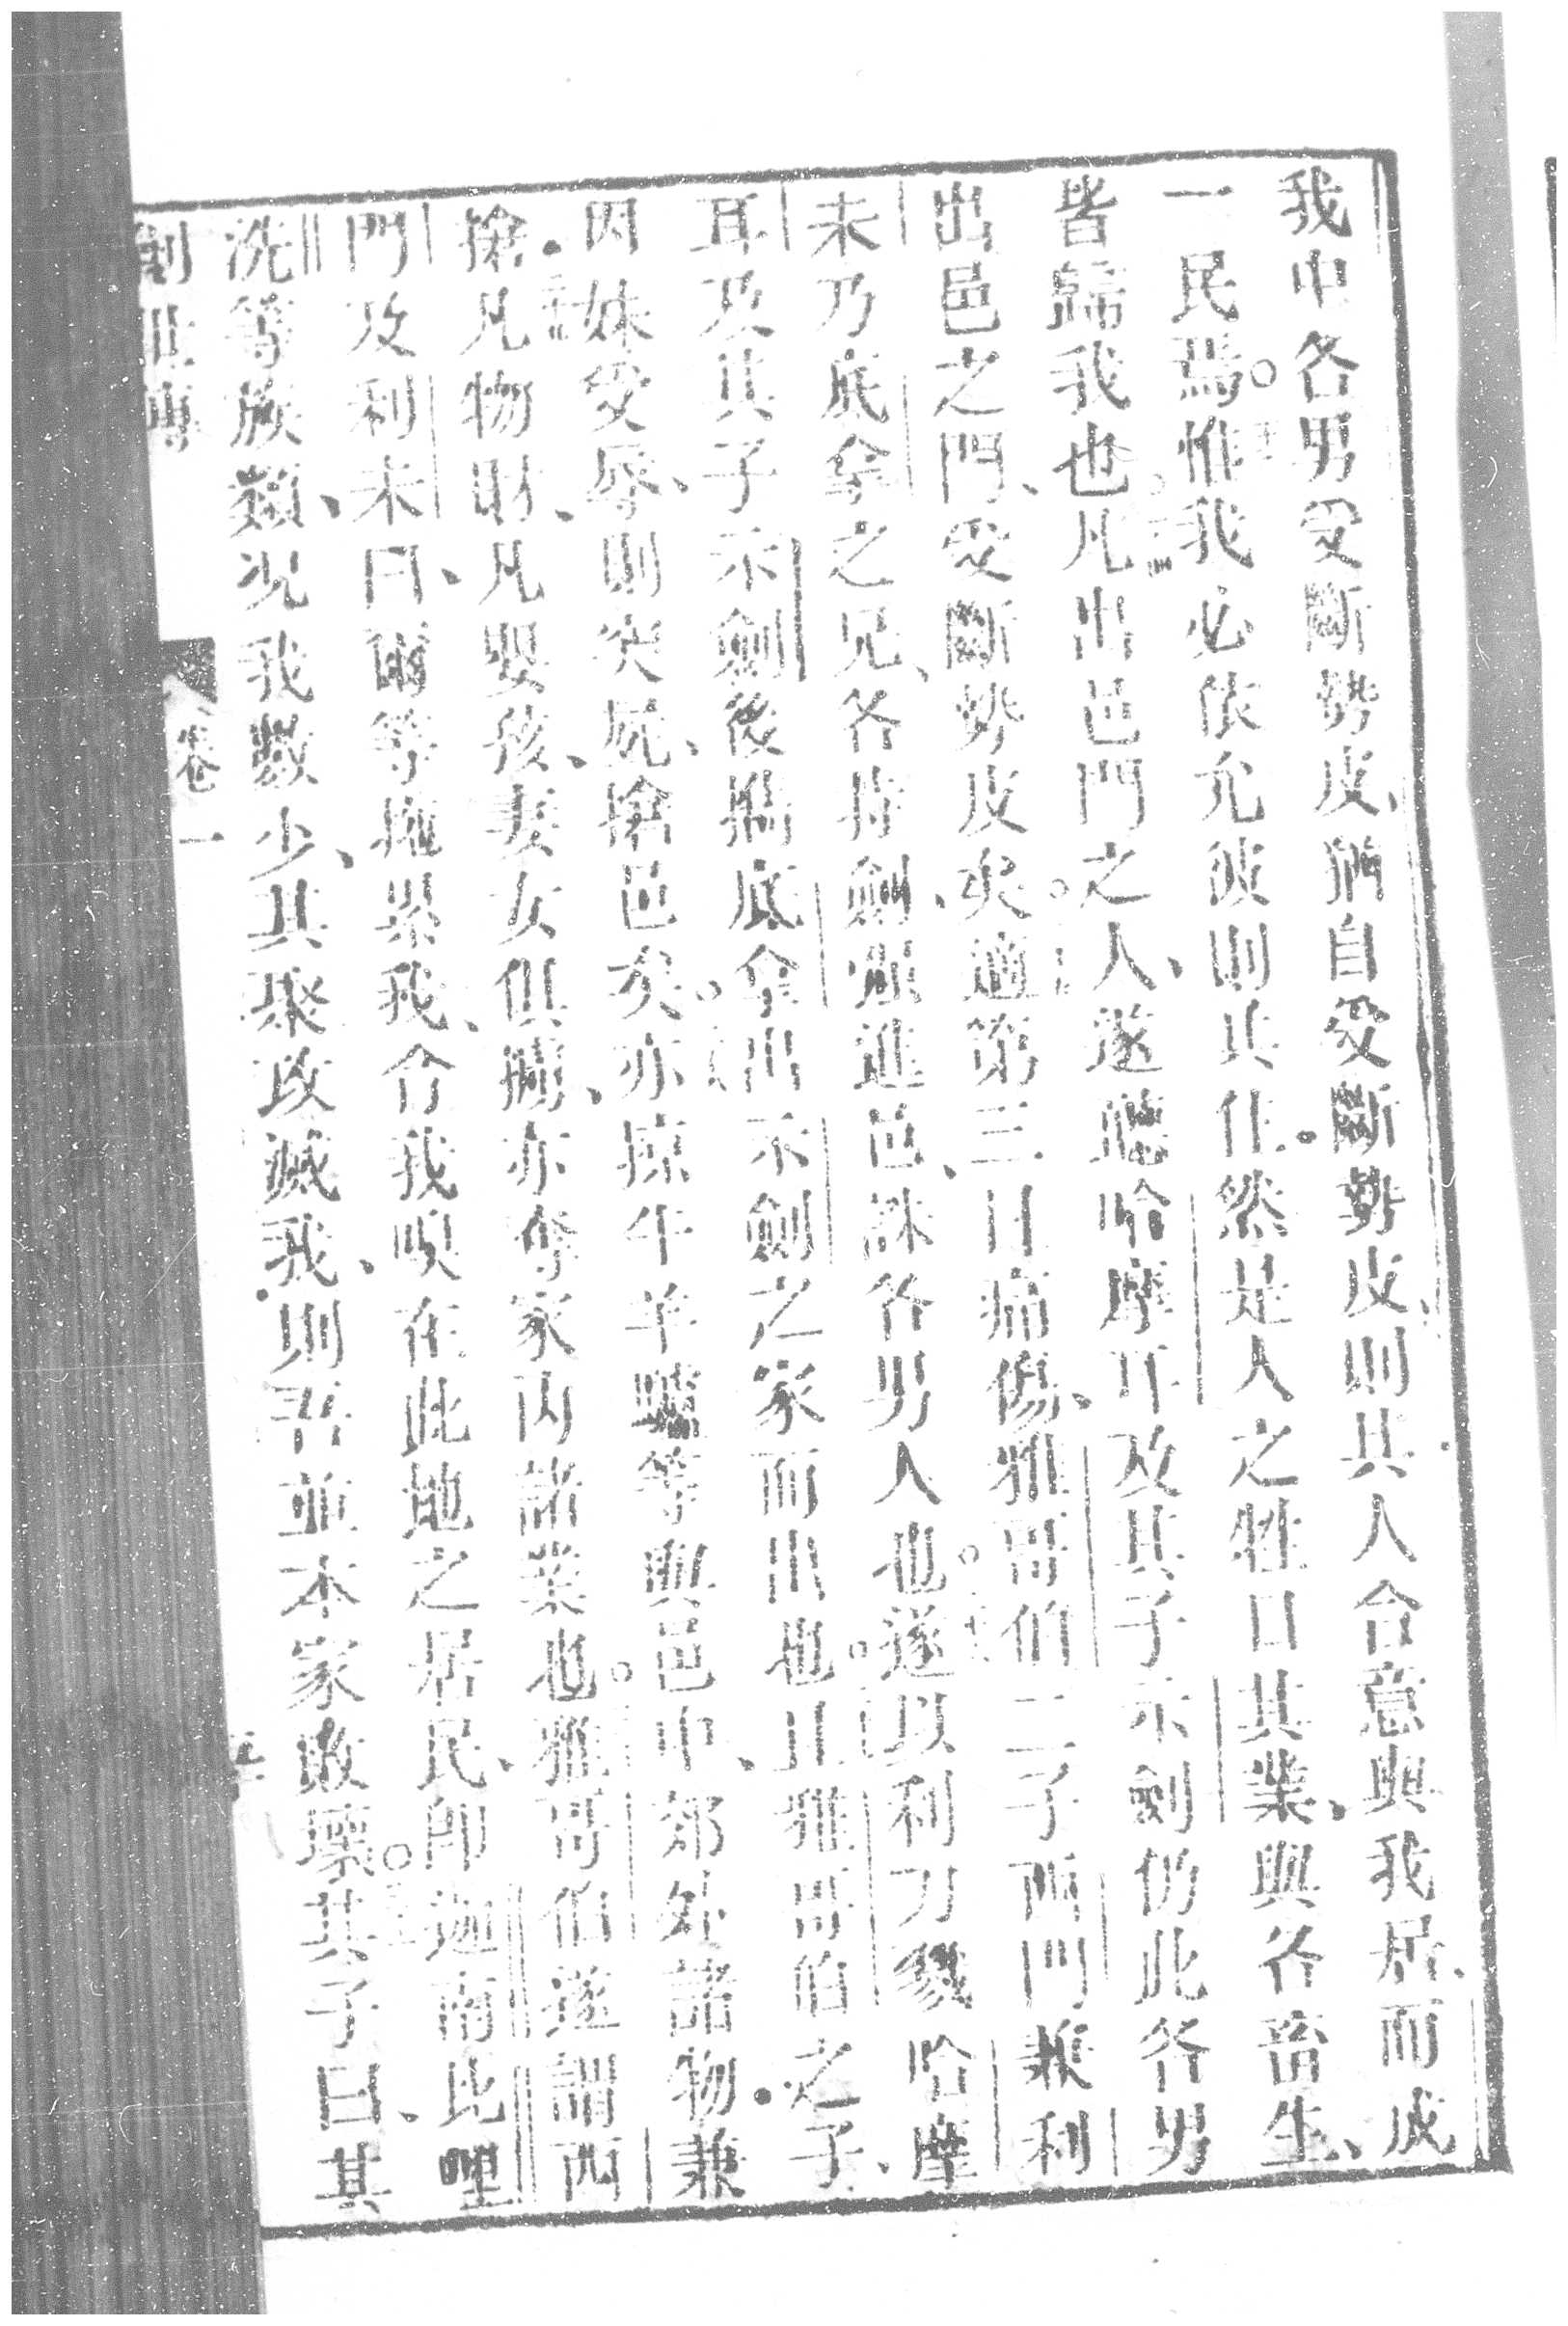 我中各男受斷勢皮、猶自受斷勢皮、則其人合意與我居、而成
一民焉。惟我必依允彼則其住。然是人之牲口其業、與各畜生、
皆歸我也凡出邑門之人、遂聽哈摩耳及其子示劍仍此各男
出邑之門、受斷勢皮矣。適第三日痛傷、雅哥伯二子西門兼利
未乃底拿之兄、各持劍、強進邑、誅各男人也。遂以利刀戮哈摩
耳及其子示劍後攜底拿出示劍之家而出也。且雅哥伯之子、
因妹受辱、則突屍、搶邑矣。亦掠牛羊驢等與邑中、郊外諸物。兼
搶凡物財、凡嬰孩、妻女俱擄、亦奪家內諸業也。雅哥伯遂謂西
門及利未曰、爾等拖累我、令我臭在此地之居民、即迦南比哩
洗等族類、況我數少、其聚攻滅我、則吾並本家敗壞。其子曰、其
創世傳
卷一